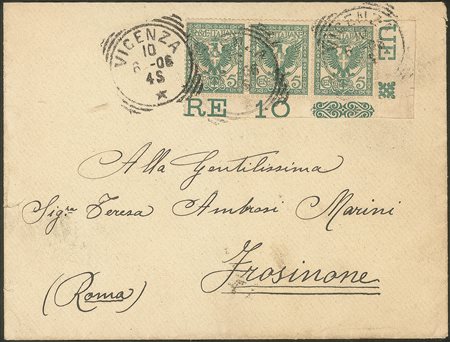 VICENZA
10
6 -06
4S
POSTE ITALIANE
5 5 5
VICENZA
UE
RE 10
Alla Gentilissima
Sigra Teresa Ambrosi Marini
Frosinone
(Roma)